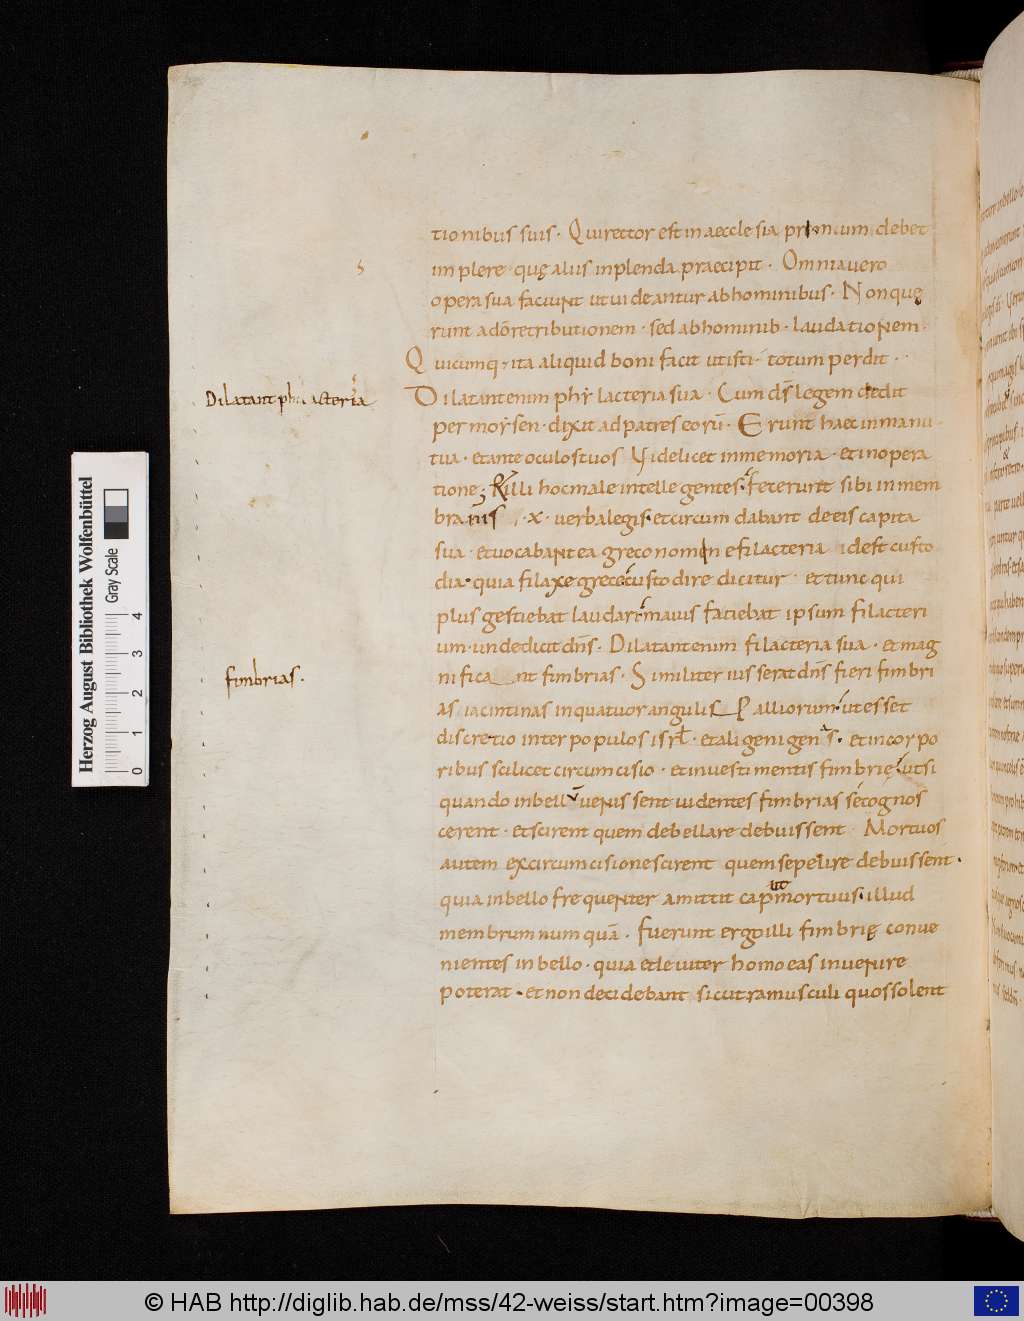 tionibus suis. Qui rector est in aecclesia primum debet
implere quę aliis inplenda praecipit. Omnia vero
opera sua faciunt ut videantur ab hominibus. Non quę
runt ad dō retributionem. sed ab hominib. laudationem.
Quicumq; ita aliquid boni facit ut isti. totum perdit.
Dilatant phylacteria
Dilatant enim phylacteria sua. Cum dṡ legem dedit
per moysen. dixit ad patres eorū. Erunt haec in manu
tua. et ante oculos tuos Videlicet in memoria. et in opera
tione; illi hoc male intellegentes. fecerunt sibi in mem
branis .x. verba legis. et circumdabant de eis capita
sua. et vocabant ea greco nomine filacteria idest custo
dia. quia filaxe grece custodire dicitur. et tunc qui
plus gestiebat laudari maius faciebat ipsum filacteri
um. unde dicit dn̄s. Dilatant enim filacteria sua. et mag
fimbrias.
nificant fimbrias. Similiter iusserat dn̄s fieri fimbri
as iacintinas in quatuor angulis Palliorum. ut esset
discretio inter populos isrl̄. et alienigenis. et in corpo
ribus scilicet circumcisio. et in vestimentis fimbrię ut si
quando in bello venissent videntes fimbrias se cognos
cerent. et scirent quem debellare debuissent. Mortuos
autem ex circumcisione scirent quem sepelire debuissent.
quia in bello frequenter amittit cap ut mortuus. illud
membrum numquā. Fuerunt ergo illi fimbrię conve
nientes in bello. quia et leviter homo eas invenire
poterat. et non decidebant sicut ramusculi quos solent
Herzog August Bibliothek Wolfenbüttel
Gray Scale
0 1 2 3 4
© HAB http://diglib.hab.de/mss/42-weiss/start.htm?image=00398